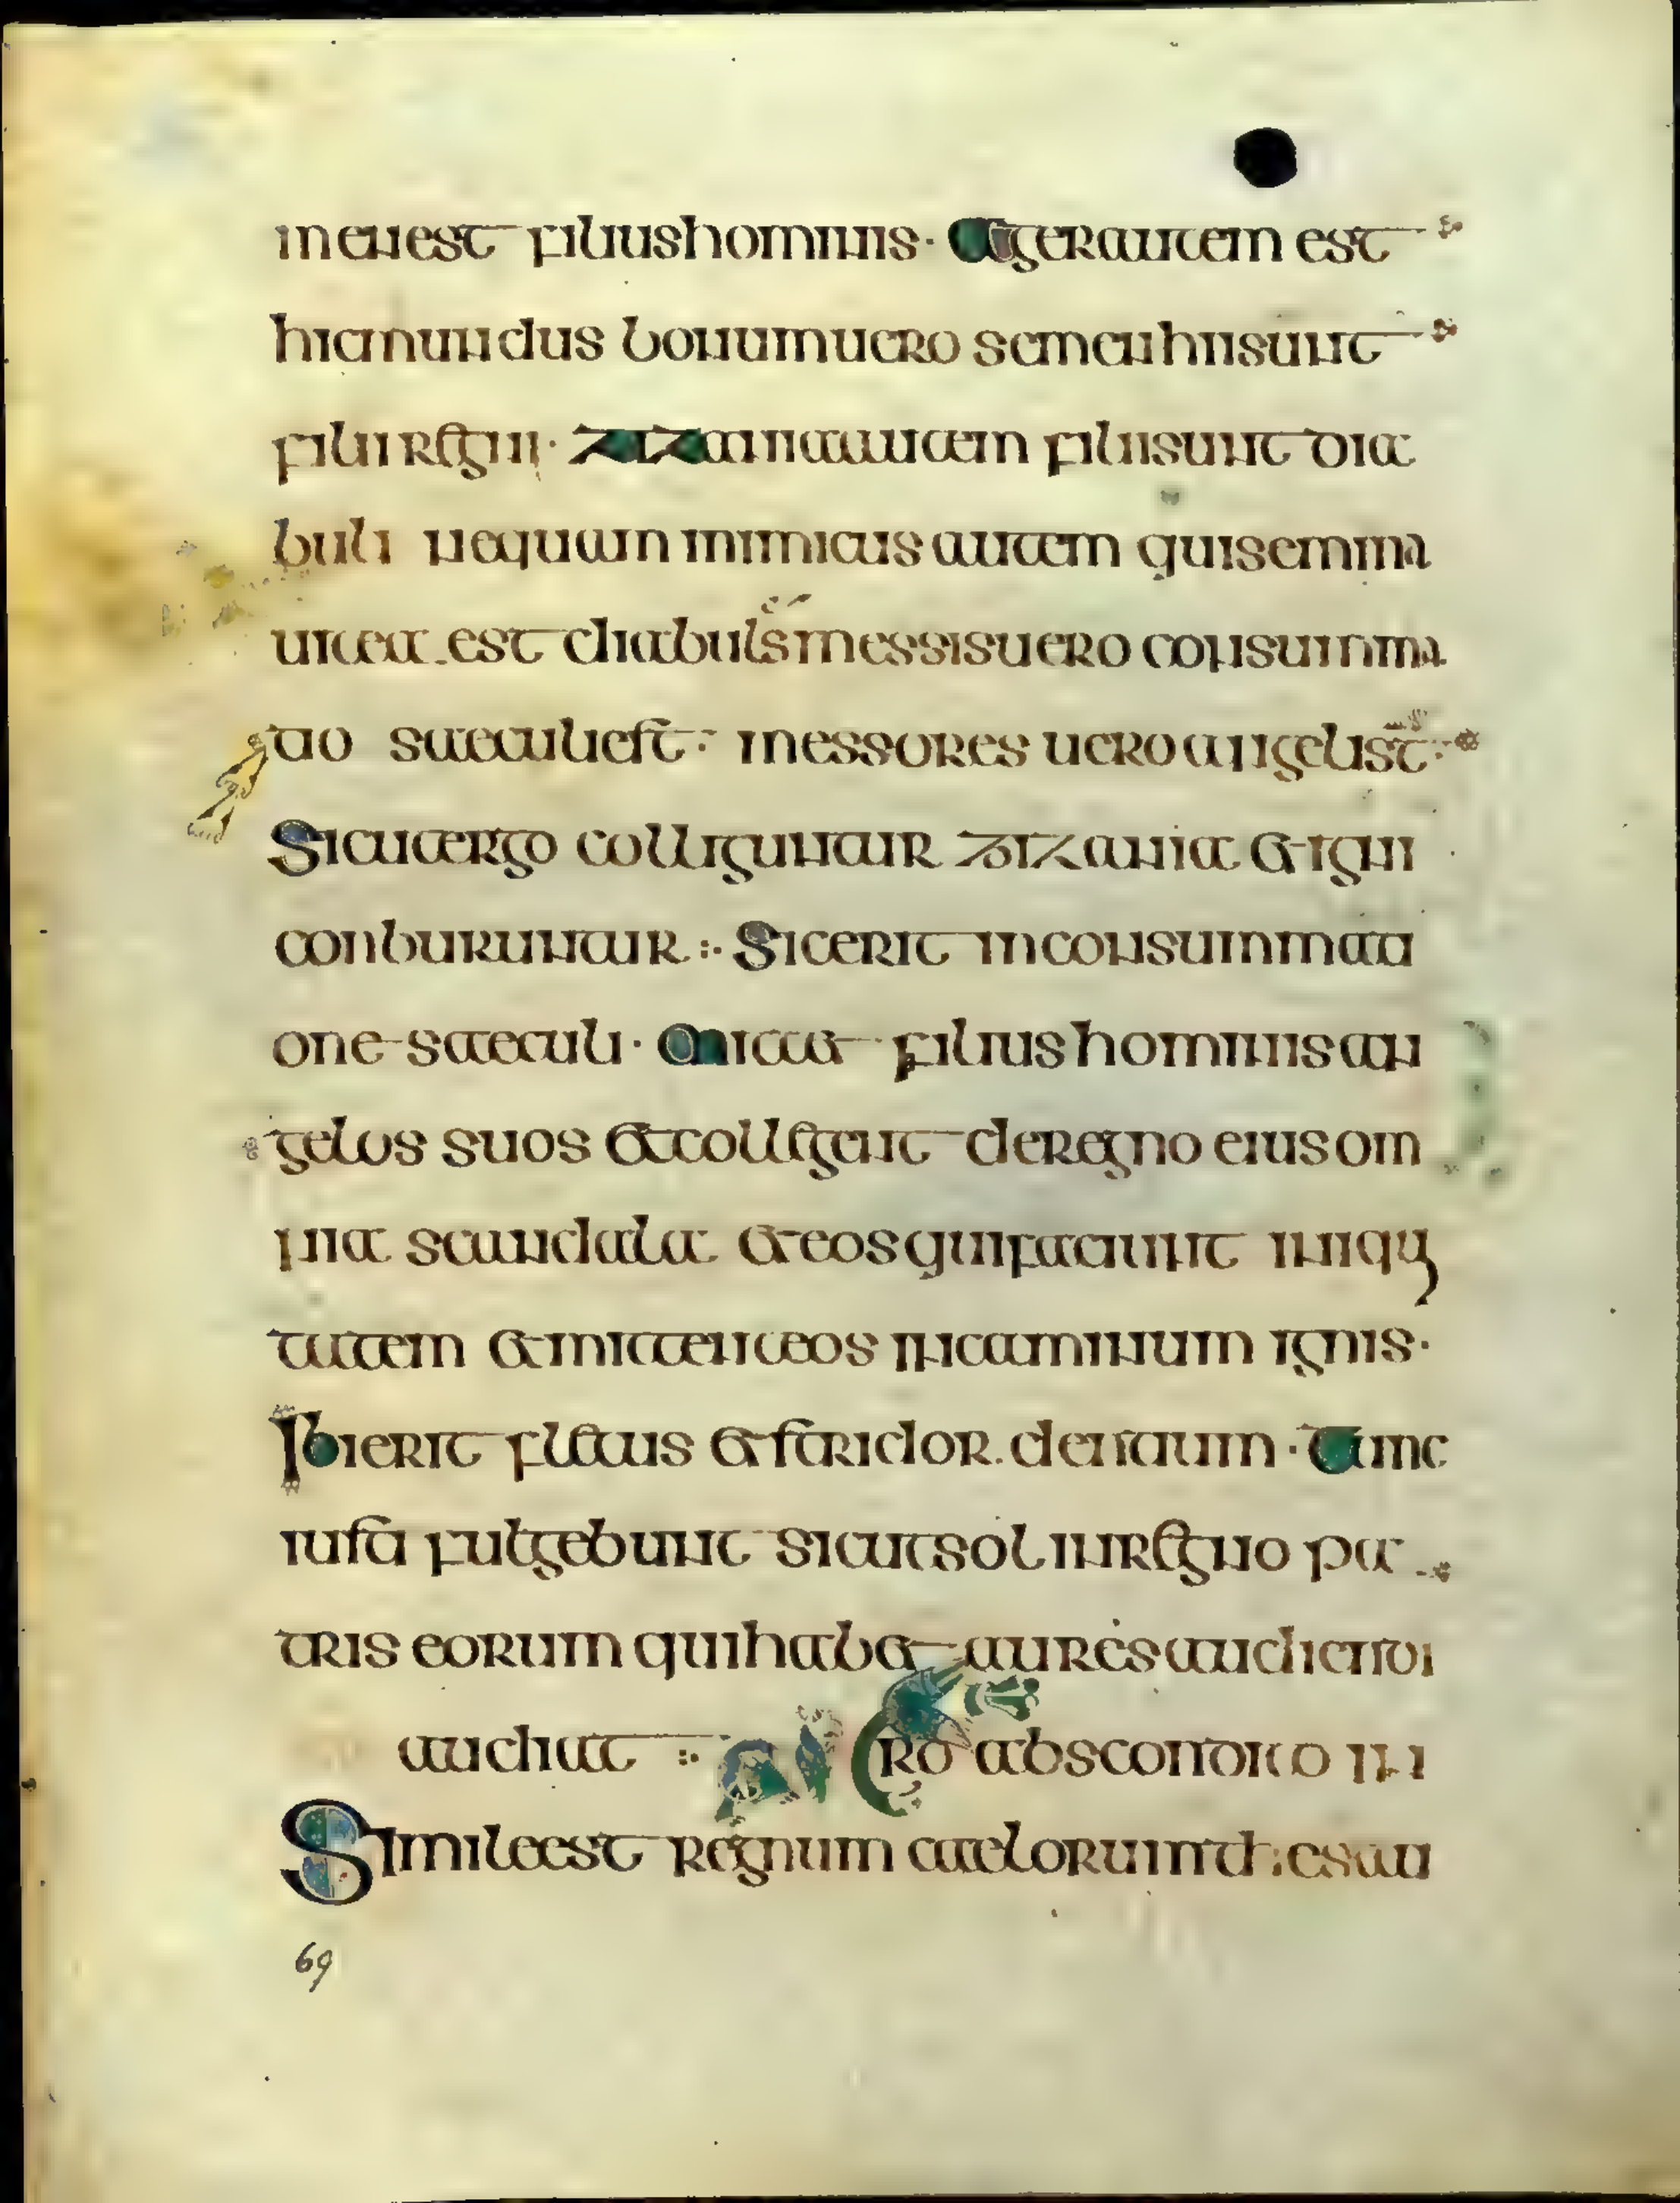 men est filius hominis · Ager autem est
hic mundus bonum uero semen hii sunt
filii regni · zizania autem filii sunt dia
buli nequam inimicus autem qui semina
uit ea est diabulus messis uero consumma
tio saeculi est : messores uero angeli st̄ :
Sicut ergo colliguntur zizania et igni
conburuntur : Sic erit in consummati
one saeculi · Mittet filius hominis an
gelos suos et collegent de regno eius om
nia scandala et eos qui faciunt iniqui
tatem et mittent eos in caminum ignis ·
Ibi erit fletus et stridor dentium · Tunc
iusti fulgebunt sicut sol in regno pa
tris eorum qui habet aures audiendi
audiat : ro abscondito in
Simile est regnum caelorum thesau
69